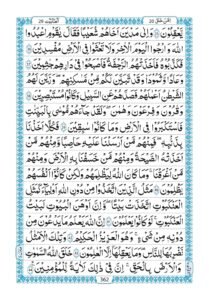 العنكبوت ٢٩
امن خلق ٢٠
يَّعْقِلُوْنَ وَاِلٰى مَدْيَنَ اَخَاهُمْ شُعَيْبًا فَقَالَ يٰقَوْمِ اعْبُدُوا
اللّٰهَ وَارْجُوا الْيَوْمَ الْاٰخِرَ وَلَا تَعْثَوْا فِى الْاَرْضِ مُفْسِدِيْنَ
فَكَذَّبُوْهُ فَاَخَذَتْهُمُ الرَّجْفَةُ فَاَصْبَحُوْا فِىْ دَارِهِمْ جٰثِمِيْنَ
وَعَادًا وَّثَمُوْدَا۠ وَقَدْ تَّبَيَّنَ لَكُمْ مِّنْ مَّسٰكِنِهِمْ وَزَيَّنَ لَهُمُ
الشَّيْطٰنُ اَعْمَالَهُمْ فَصَدَّهُمْ عَنِ السَّبِيْلِ وَكَانُوْا مُسْتَبْصِرِيْنَ
وَقَارُوْنَ وَفِرْعَوْنَ وَهَامٰنَ وَلَقَدْ جَآءَهُمْ مُّوْسٰى بِالْبَيِّنٰتِ
فَاسْتَكْبَرُوْا فِى الْاَرْضِ وَمَا كَانُوْا سٰبِقِيْنَ فَكُلًّا اَخَذْنَا
بِذَنْۢبِهٖ فَمِنْهُمْ مَّنْ اَرْسَلْنَا عَلَيْهِ حَاصِبًا وَمِنْهُمْ مَّنْ
اَخَذَتْهُ الصَّيْحَةُ وَمِنْهُمْ مَّنْ خَسَفْنَا بِهِ الْاَرْضَ وَمِنْهُمْ مَّنْ
اَغْرَقْنَا وَمَا كَانَ اللّٰهُ لِيَظْلِمَهُمْ وَلٰكِنْ كَانُوْا اَنْفُسَهُمْ
يَظْلِمُوْنَ مَثَلُ الَّذِيْنَ اتَّخَذُوْا مِنْ دُوْنِ اللّٰهِ اَوْلِيَآءَ كَمَثَلِ
الْعَنْكَبُوْتِ اِتَّخَذَتْ بَيْتًا وَاِنَّ اَوْهَنَ الْبُيُوْتِ لَبَيْتُ
الْعَنْكَبُوْتِ لَوْ كَانُوْا يَعْلَمُوْنَ اِنَّ اللّٰهَ يَعْلَمُ مَا يَدْعُوْنَ مِنْ
دُوْنِهٖ مِنْ شَىْءٍ وَهُوَ الْعَزِيْزُ الْحَكِيْمُ وَتِلْكَ الْاَمْثَالُ
نَضْرِبُهَا لِلنَّاسِ وَمَا يَعْقِلُهَا اِلَّا الْعٰلِمُوْنَ خَلَقَ اللّٰهُ السَّمٰوٰتِ
وَالْاَرْضَ بِالْحَقِّ اِنَّ فِىْ ذٰلِكَ لَاٰيَةً لِّلْمُؤْمِنِيْنَ
362